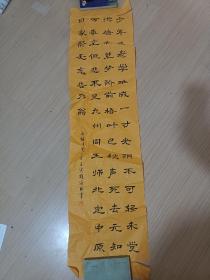 少年易老学难成一寸光阴不可轻未觉
池塘春草梦阶前梧叶已秋声死去元知
万事空但悲不见九州同王师北定中原
日家祭无忘告乃翁